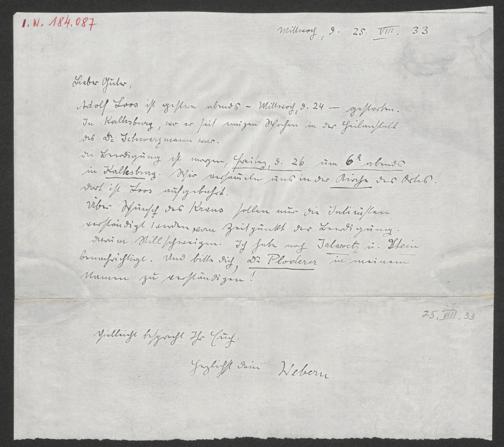 I.N. 184.087
Mittwoch, d. 25. VIII. 33
Lieber Guter,
Adolf Loos ist gestern abends – Mittwoch, d. 24 – gestorben.
In Kalksburg, wo er seit einigen Wochen in der Heilanstalt
des Dr. Schwarzmann war.
die Beerdigung ist morgen, Freitag, d. 26 um 6h abends
in Kalksburg. Wir versammeln uns in der Kirche des Ortes.
dort ist Loos aufgebahrt.
Über Wunsch des Kraus sollen nur die Intimsten
verständigt werden vom Zeitpunkt der Beerdigung.
darum Stillschweigen. Ich habe noch Jalowetz u. Stein
benachrichtigt. Und bitte dich, Dr. Ploderer in meinem
Namen zu verständigen!
25. VIII. 33
Vielleicht besprecht Ihr Euch.
Herzlichst dein Webern